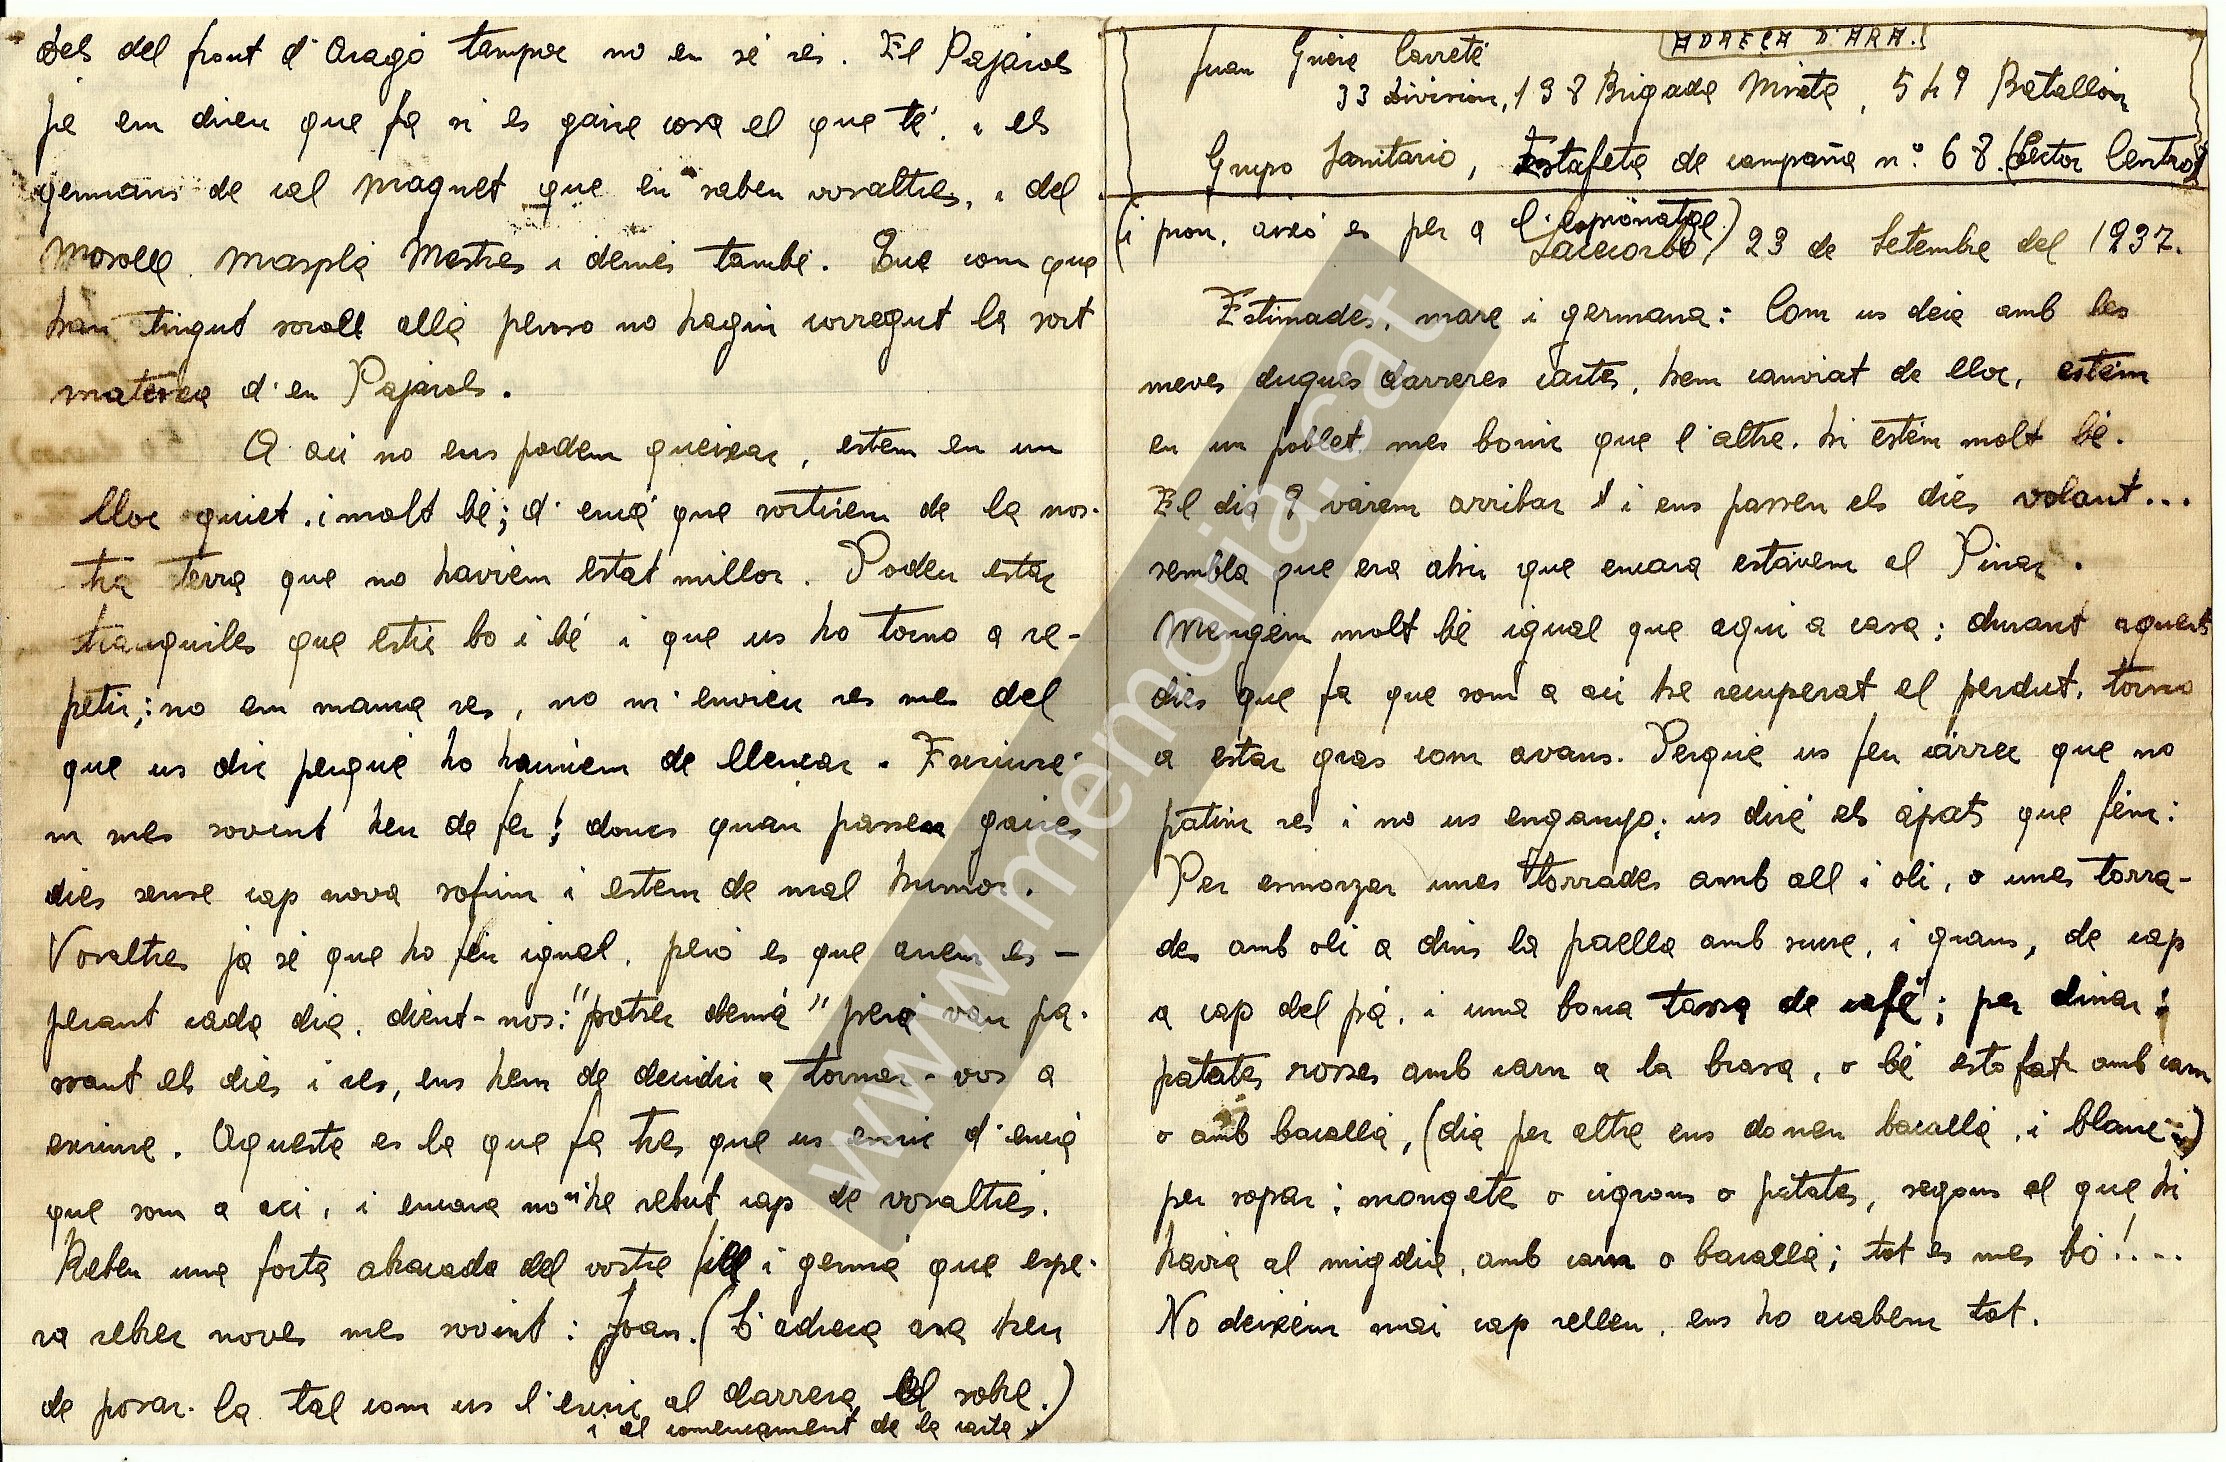 ADREÇA D'ARA.
Juan Guiere Carreté
33 Division, 138 Brigada Mixta, 549 Batallón
Grupo Sanitario, Estafeta de campaña nº. 68. (Sector Centro)
(i prou, aixó es per a l'espionatge.)
23 de Setembre del 1937.
Estimades, mare i germana: Com us deia amb les
meves dugues darreres cartes, hem canviat de lloc, estém
en un poblet mes bonic que l'altre, hi estém molt bé.
El dia 9 várem arribar i ens passen els dies volant...
sembla que era ahir que encara estávem al Pinar.
Mengém molt bé igual que aquí a casa; durant aquets
dies que fa que som a aci he recuperat el perdut, torno
a estar gras com avans. Perque us feu cárrec que no
patim res i no us enganyo; us diré els ápats que fém:
Per esmorzar unes torrades amb all i oli, o unes torra-
des amb oli a dins la paella amb sucre, i grans, de cap
a cap del pá, i una bona tassa de café; per dinar:
patates rosses amb carn a la brasa, o bé estofat amb carn
o amb bacallá, (dia per altre ens donen bacallá, i blanc)
per sopar; mongete o cigrons o patates, segons el que hi
havia al migdia, amb carn o bacallá; tot es mes bo!...
No deixém mai cap relleu, ens ho acabem tot.
dels del front d'Aragó tampoc no en sé res. El Pajarols
ja em direu que fa si es gaire cosa el que té, i els
germans de cal Maguet que en saben vosaltres, i del
Masplá Mestres i demés també. Que com que
han tingut soroll allá penso no hagin corregut la sort
mateixa d'en Pajarols.
A aci no ens podem queixar, estem en un
lloc quiet, i molt bé; d'ençá que sortirem de la nos-
tra terra que no haviem estat millor. Podeu estar
tranquiles que estic bo i bé i que us ho torno a re-
petir; no em manca res, no m'envieu res mes del
que us dic perqué ho hauriem de llençar. Escriure'
m mes sovint heu de fer; doncs quan passen gaires
dies sense cap nova sofrim i estem de mal humor.
Vosaltres ja sé que ho feu igual, peró es que anem es-
perant cada dia, dient-nos: "potser demá" peró van pa-
ssant els dies i res, ens hem de decidir a tornar-vos a
escriure. Aquesta es la que fa tres que us escric d'ençá
que som a aci, i encara no n'he rebut cap de vosaltres.
Rebeu una forta abraçada del vostre fill i germá que espe-
ra rebrer noves mes sovint: Joan. (L'adreça ara heu
de posar-la tal com us l'escric al darrera del sobre.)
i al començament de la carta.)
www.memoria.cat